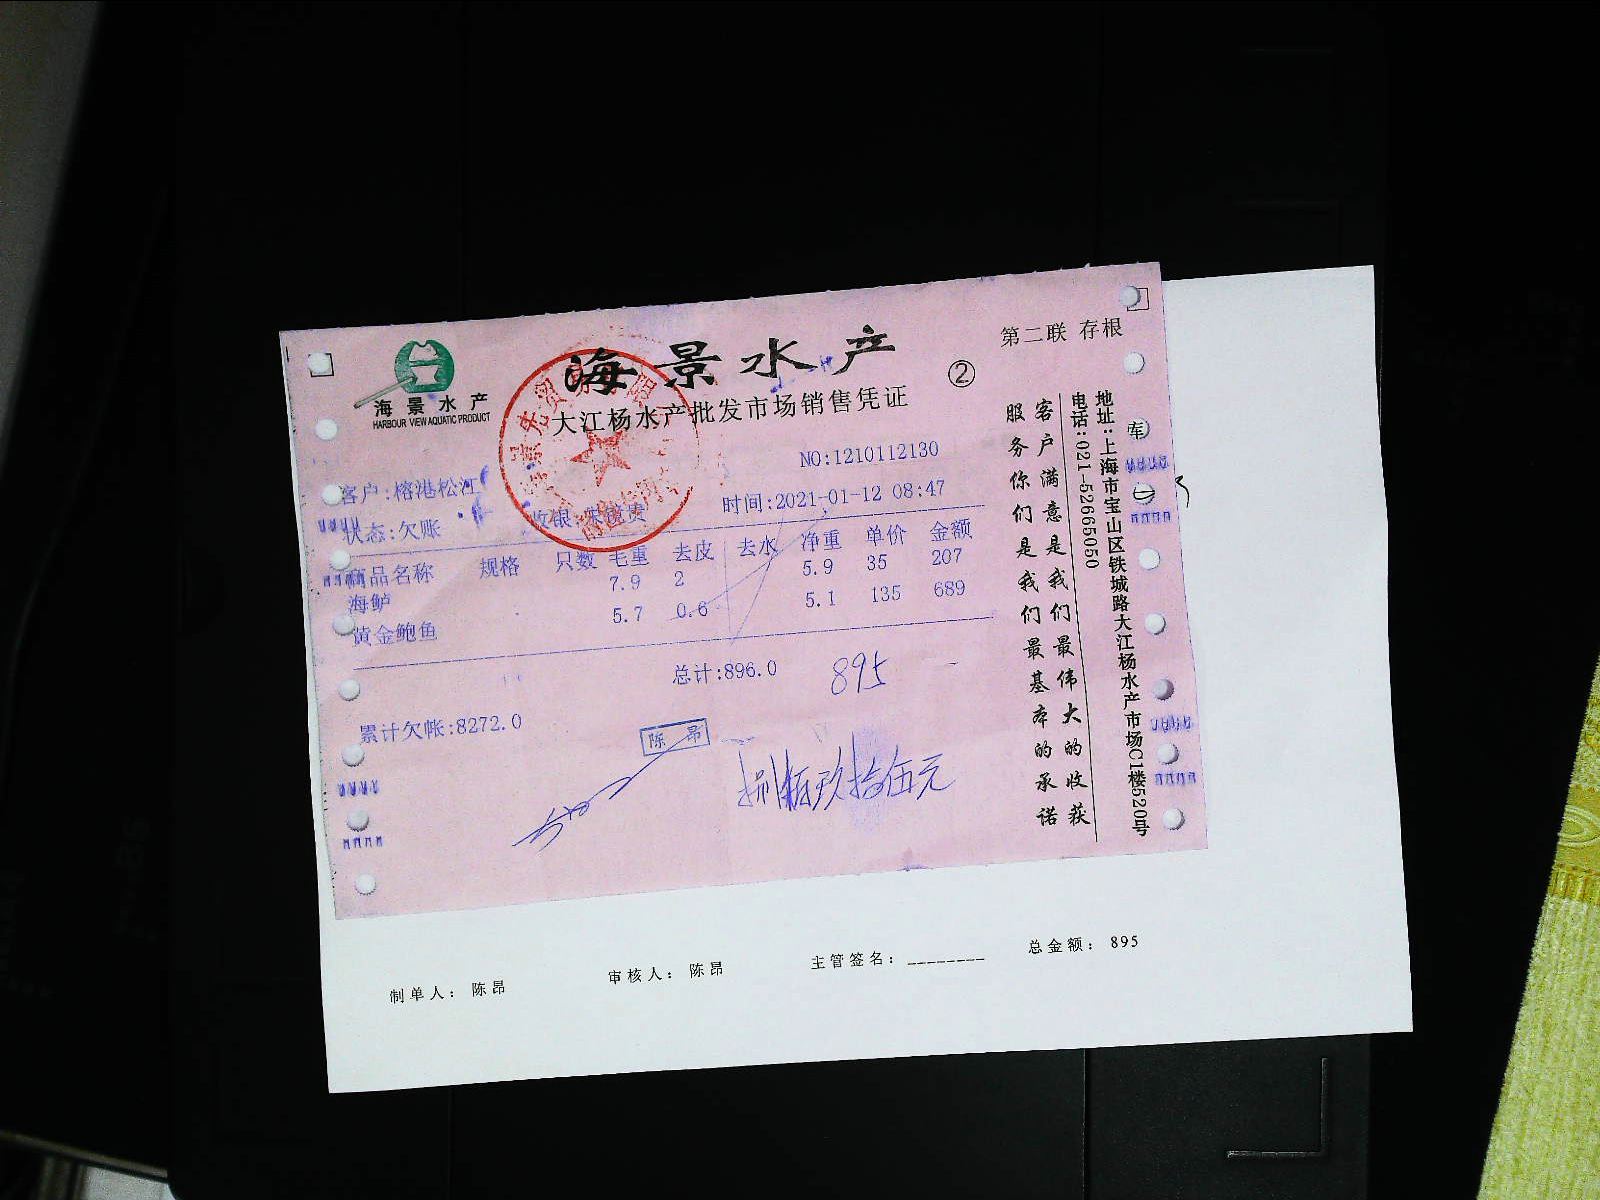 第二联 存根
海景水产
②
海景水产
HARBOUR VIEW AQUATIC PRODUCT
大江杨水产批发市场销售凭证
NO:1210112130
客户:榕港松江
时间:2021-01-12 08:47
状态:欠账 收银:
商品名称 规格 只数 毛重 去皮 去水 净重 单价 金额
海鲈 7.9 2 5.9 35 207
黄金鲍鱼 5.7 0.6 5.1 135 689
总计:896.0 895
累计欠帐:8272.0
陈昂
捌佰玖拾伍元
客户满意是我们最伟大的收获
服务你们是我们最基本的承诺
地址:上海市宝山区铁城路大江杨水产市场C1楼520号
电话:021-52665050
制单人: 陈昂 审核人: 陈昂 主管签名: ________ 总金额: 895